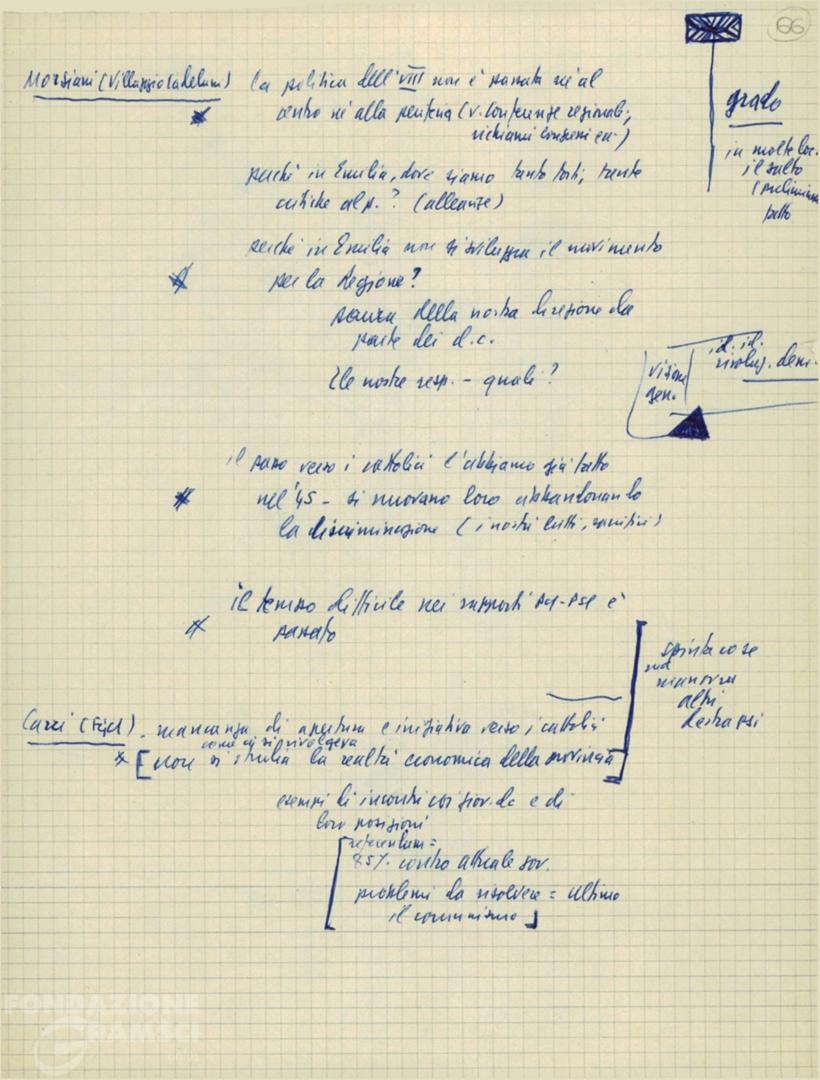 66
Morsiani (Villaggio Cadelum) la politica dell'VIII non è passata né al
centro né alla periferia (v. Conferenze regionali,
richiami Consensi ecc.)
grado
in molte loc.
il salto
perché in Emilia, dove siamo tanto forti, tante
critiche al p.? (alleanze)
perché in Emilia non si sviluppa il movimento
per la Regione?
paura della nostra direzione da
parte dei d.c.
le nostre resp. - quali?
visione
gen.
id. id.
rivoluz. dem.
il passo verso i cattolici l'abbiamo già fatto
nel '45 - si muovano loro abbandonando
la discriminazione (i nostri lutti, sacrifici)
il tempo difficile nei rapporti PCI-PSI è
passato
spinta cose
manovra
altri
destra psi
Carri (Fgci). mancanza di apertura e iniziativa verso i cattolici
come ci si rivolgeva
[non si studia la realtà economica della provincia]
esempi di incontri coi giov. dc e di
loro posizioni
[referendum =
85% contro attuale gov.
problemi da risolvere = ultimo
il comunismo]
FONDAZIONE
GRAMSCI